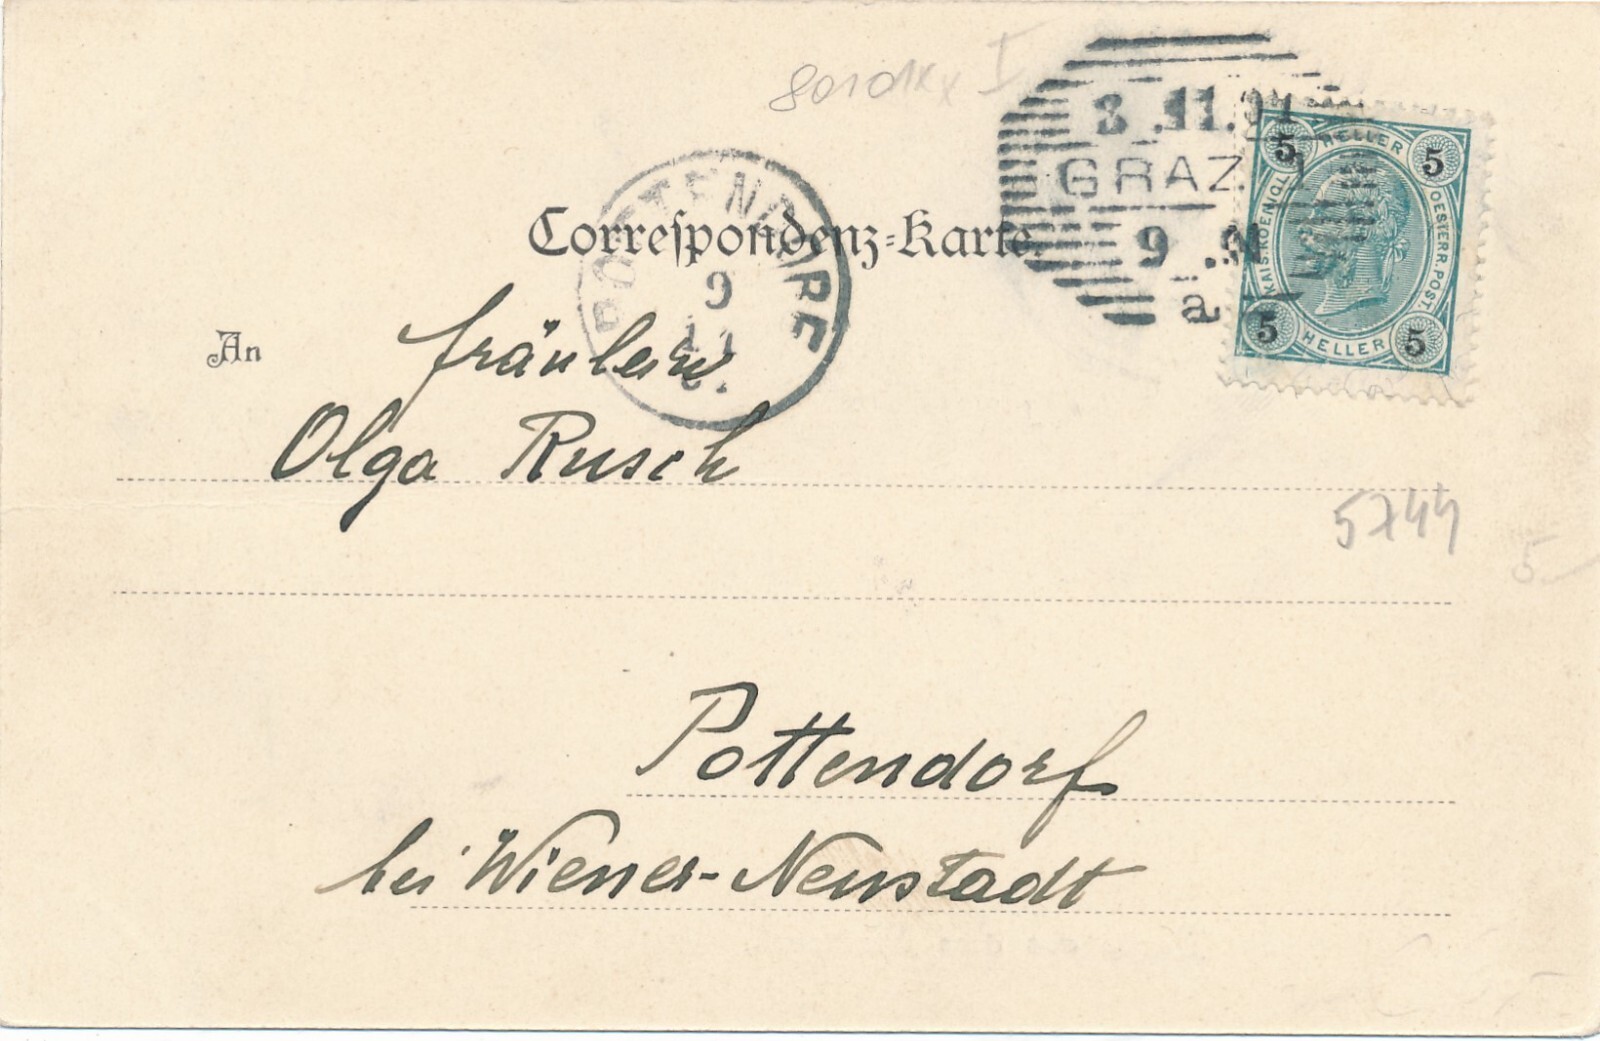 8.11.01
GRAZ 1
9.N
a
5 HELLER 5
KAIS. KOENIGL.
OESTERR. POST.
5 HELLER 5
Correſpondenz-Karte.
POTTENDORF
9
11
01
An Fräulein
Olga Rusch
5744
5
Pottendorf
bei Wiener-Neustadt